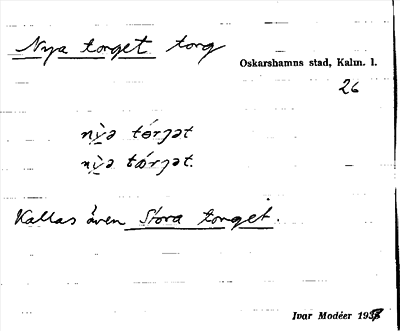 Nya torget torg
Oskarshamns stad, Kalm. l.
26
nỳə tórjət
nỳə tɷ́rjət.
Kallas även Stora torget.
Ivar Modéer 193